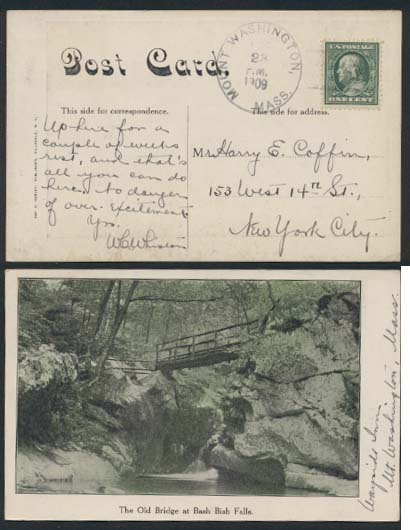 Post Card.
MOUNT WASHINGTON,
MASS.
1909
U.S. POSTAGE
ONE CENT
This side for correspondence.
This side for address.
Up here for a
couple of weeks
rest, and that's
all you can do
here. No danger
of over-excitement
Yrs.
Mr. Harry E. Coffin,
153 West 14th St.,
New York City.
The Old Bridge at Bash Bish Falls.
Wayside Inn
Mt. Washington, Mass.